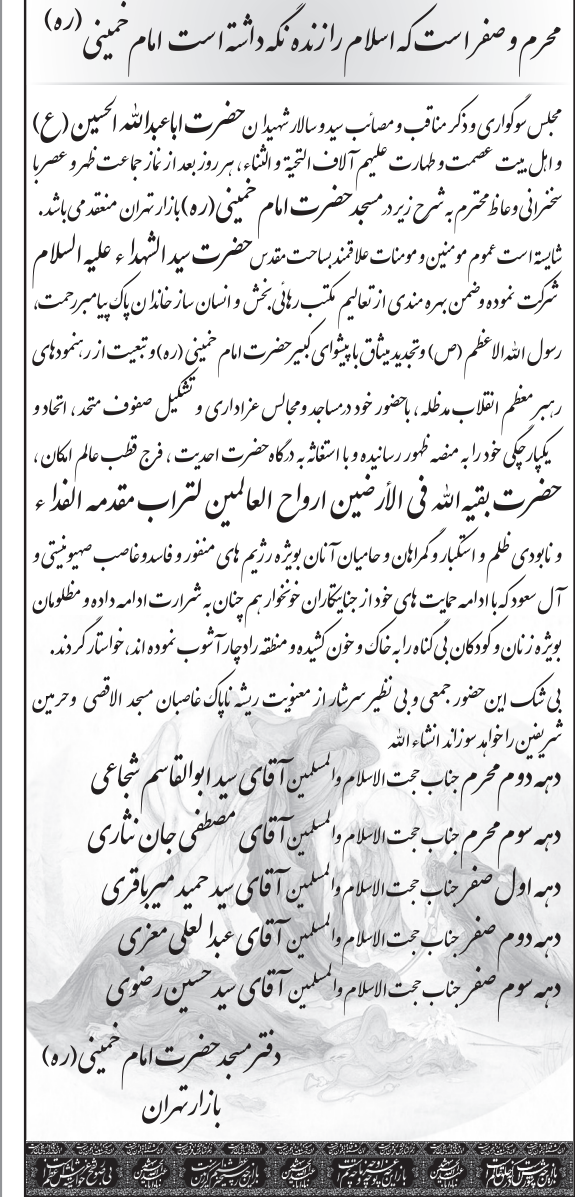 محرم و صفر است که اسلام را زنده نگه داشته است امام خمینی (ره)
مجلس سوگواری و ذکر مناقب و مصائب سید و سالار شهیدان حضرت اباعبدالله الحسین (ع)
و اهل بیت عصمت و طهارت علیهم آلاف التحیة و الثناء، هر روز بعد از نماز جماعت ظهر و عصر با
سخنرانی وعاظ محترم به شرح زیر در مسجد حضرت امام خمینی (ره) بازار تهران منعقد می باشد.
شایسته است عموم مومنین و مومنات علاقمند بساحت مقدس حضرت سید الشهداء علیه السلام
شرکت نموده و ضمن بهره مندی از تعالیم مکتب رهائی بخش و انسان ساز خاندان پاک پیامبر رحمت،
رسول الله الاعظم (ص) و تجدید میثاق با پیشوای کبیر حضرت امام خمینی (ره) و تبعیت از رهنمودهای
رهبر معظم انقلاب مدظله، با حضور خود در مساجد و مجالس عزاداری و تشکیل صفوف متحد، اتحاد و
یکپارچگی خود را به منصه ظهور رسانیده و با استغاثه به درگاه حضرت احدیت، فرج قطب عالم امکان،
حضرت بقیه الله فی الأرضین ارواح العالمین لتراب مقدمه الفداء
و نابودی ظلم و استکبار و گمراهان و حامیان آنان بویژه رژیم های منفور و فاسد و غاصب صهیونیستی و
آل سعود که با ادامه حمایت های خود از جنایتکاران خونخوار هم چنان به شرارت ادامه داده و مظلومان
بویژه زنان و کودکان بی گناه را به خاک و خون کشیده و منطقه را دچار آشوب نموده اند، خواستار گردند.
بی شک این حضور جمعی و بی نظیر سرشار از معنویت ریشه ناپاک غاصبان مسجد الاقصی و حرمین
شریفین را خواهد سوزاند انشاء الله
دهه دوم محرم جناب حجت الاسلام والمسلمین آقای سید ابوالقاسم شجاعی
دهه سوم محرم جناب حجت الاسلام والمسلمین آقای مصطفی جان نثاری
دهه اول صفر جناب حجت الاسلام والمسلمین آقای سید حمید میرباقری
دهه دوم صفر جناب حجت الاسلام والمسلمین آقای عبدالعلی معزی
دهه سوم صفر جناب حجت الاسلام والمسلمین آقای سید حسین رضوی
دفتر مسجد حضرت امام خمینی (ره)
بازار تهران